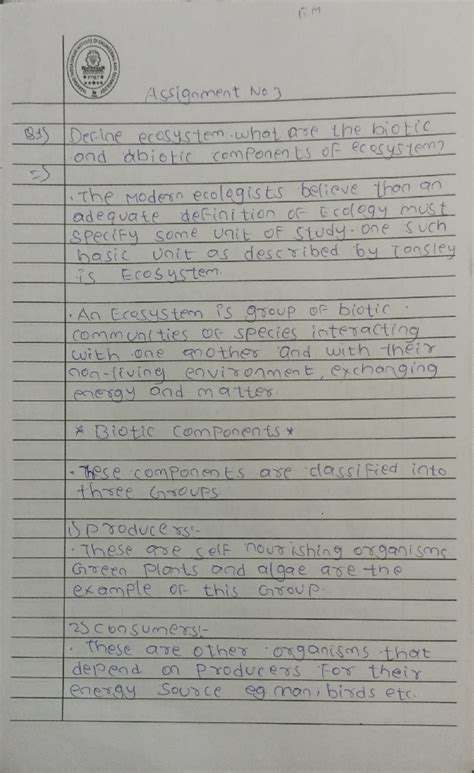 Assignment No 3
Q3) Define ecosystem. what are the biotic
and abiotic components of ecosystem?
=)
• The Modern ecologists believe than an
adequate definition of Ecology must
specify some unit of study. one such
basic unit as described by Tansley
is Ecosystem.
• An Ecosystem is group of biotic
communities of species interacting
with one another and with their
non-living environment, exchanging
energy and matter.
* Biotic components *
• These components are classified into
three Groups.
1) Producers:-
• These are self nourishing organisms
Green Plants and algae are the
example of this Group.
2) Consumers:-
• These are other organisms that
depend on Producers For their
energy Source eg man, birds etc.